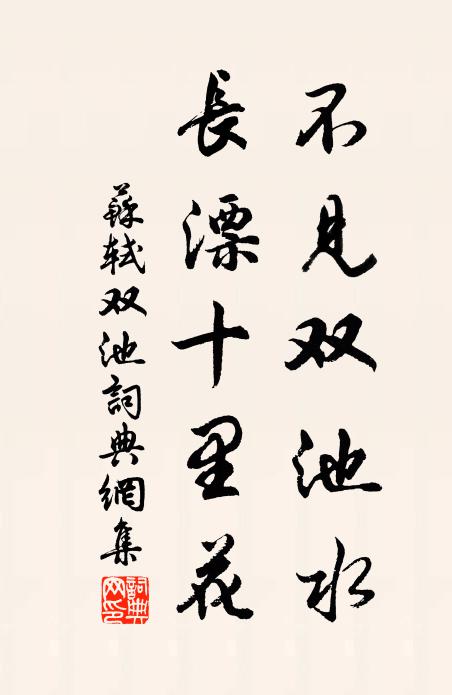 不見双池水
長漂十里花
蘇軾双池詞典網集
詞典網印